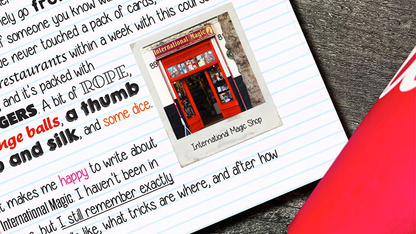 ely go
f someone you know
be never touched a pack of cards,
restaurants within a week with this
and it's packed with
GERS. A bit of ROPE,
nge balls, a thumb
and silk, and some dice.
International Magic
International Magic Shop
t makes me happy to write about
International Magic. I haven't been in
, but I still remember exactly
like, what tricks are where, and after how